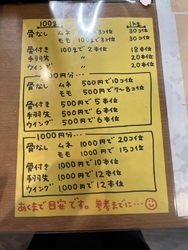 100g 1kg
骨なし ムネ 3コ位 30コ位
モモ 100gで3コ位 30コ位
骨付き 100gで2本位 18本位
手羽先 〃 20本位
ウイング 〃 20本位
500円分…
骨なし ムネ 500円で10コ位
モモ 500円で7～8コ位
骨付き 500円で5本位
手羽先 500円で6本位
ウイング 500円で6本位
1000円分…
骨なし ムネ 1000円で20コ位
モモ 1000円で15コ位
骨付き 1000円で10本位
手羽先 1000円で12本位
ウイング 1000円で12本位
あくまで目安です。参考までに…